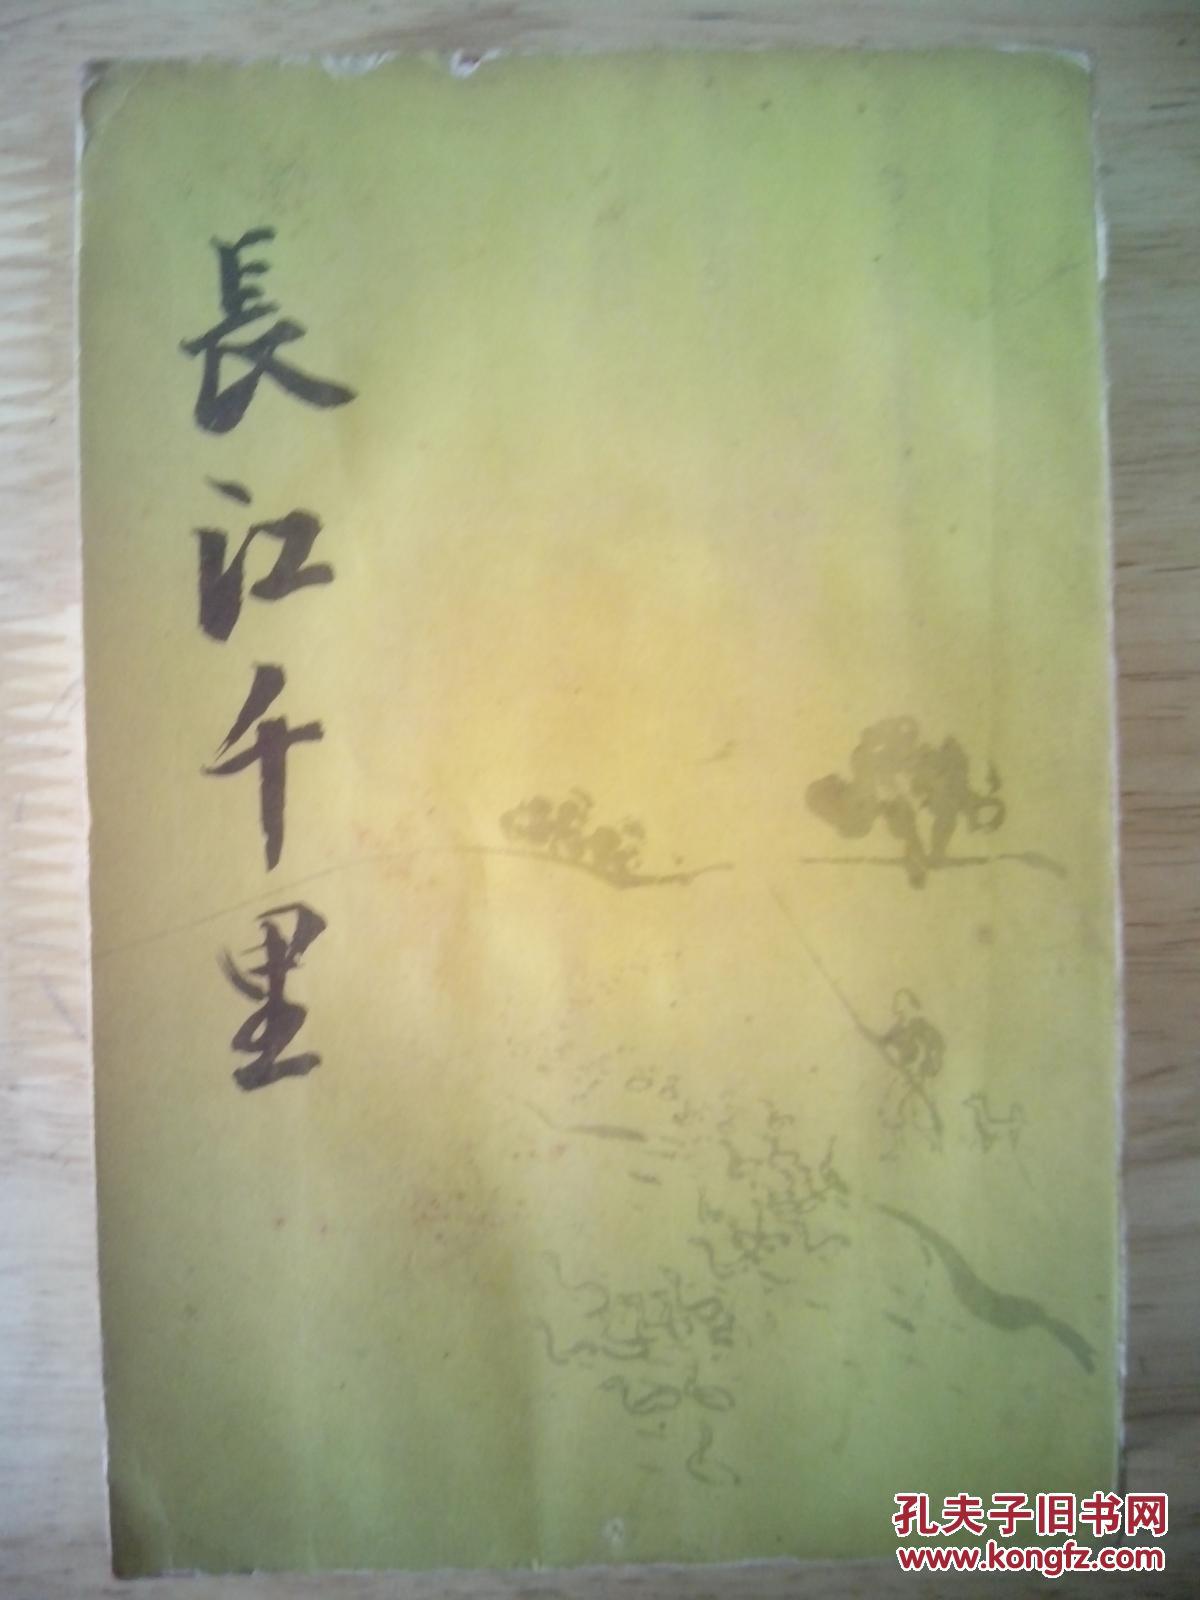 長江千里
孔夫子旧书网
www.kongfz.com